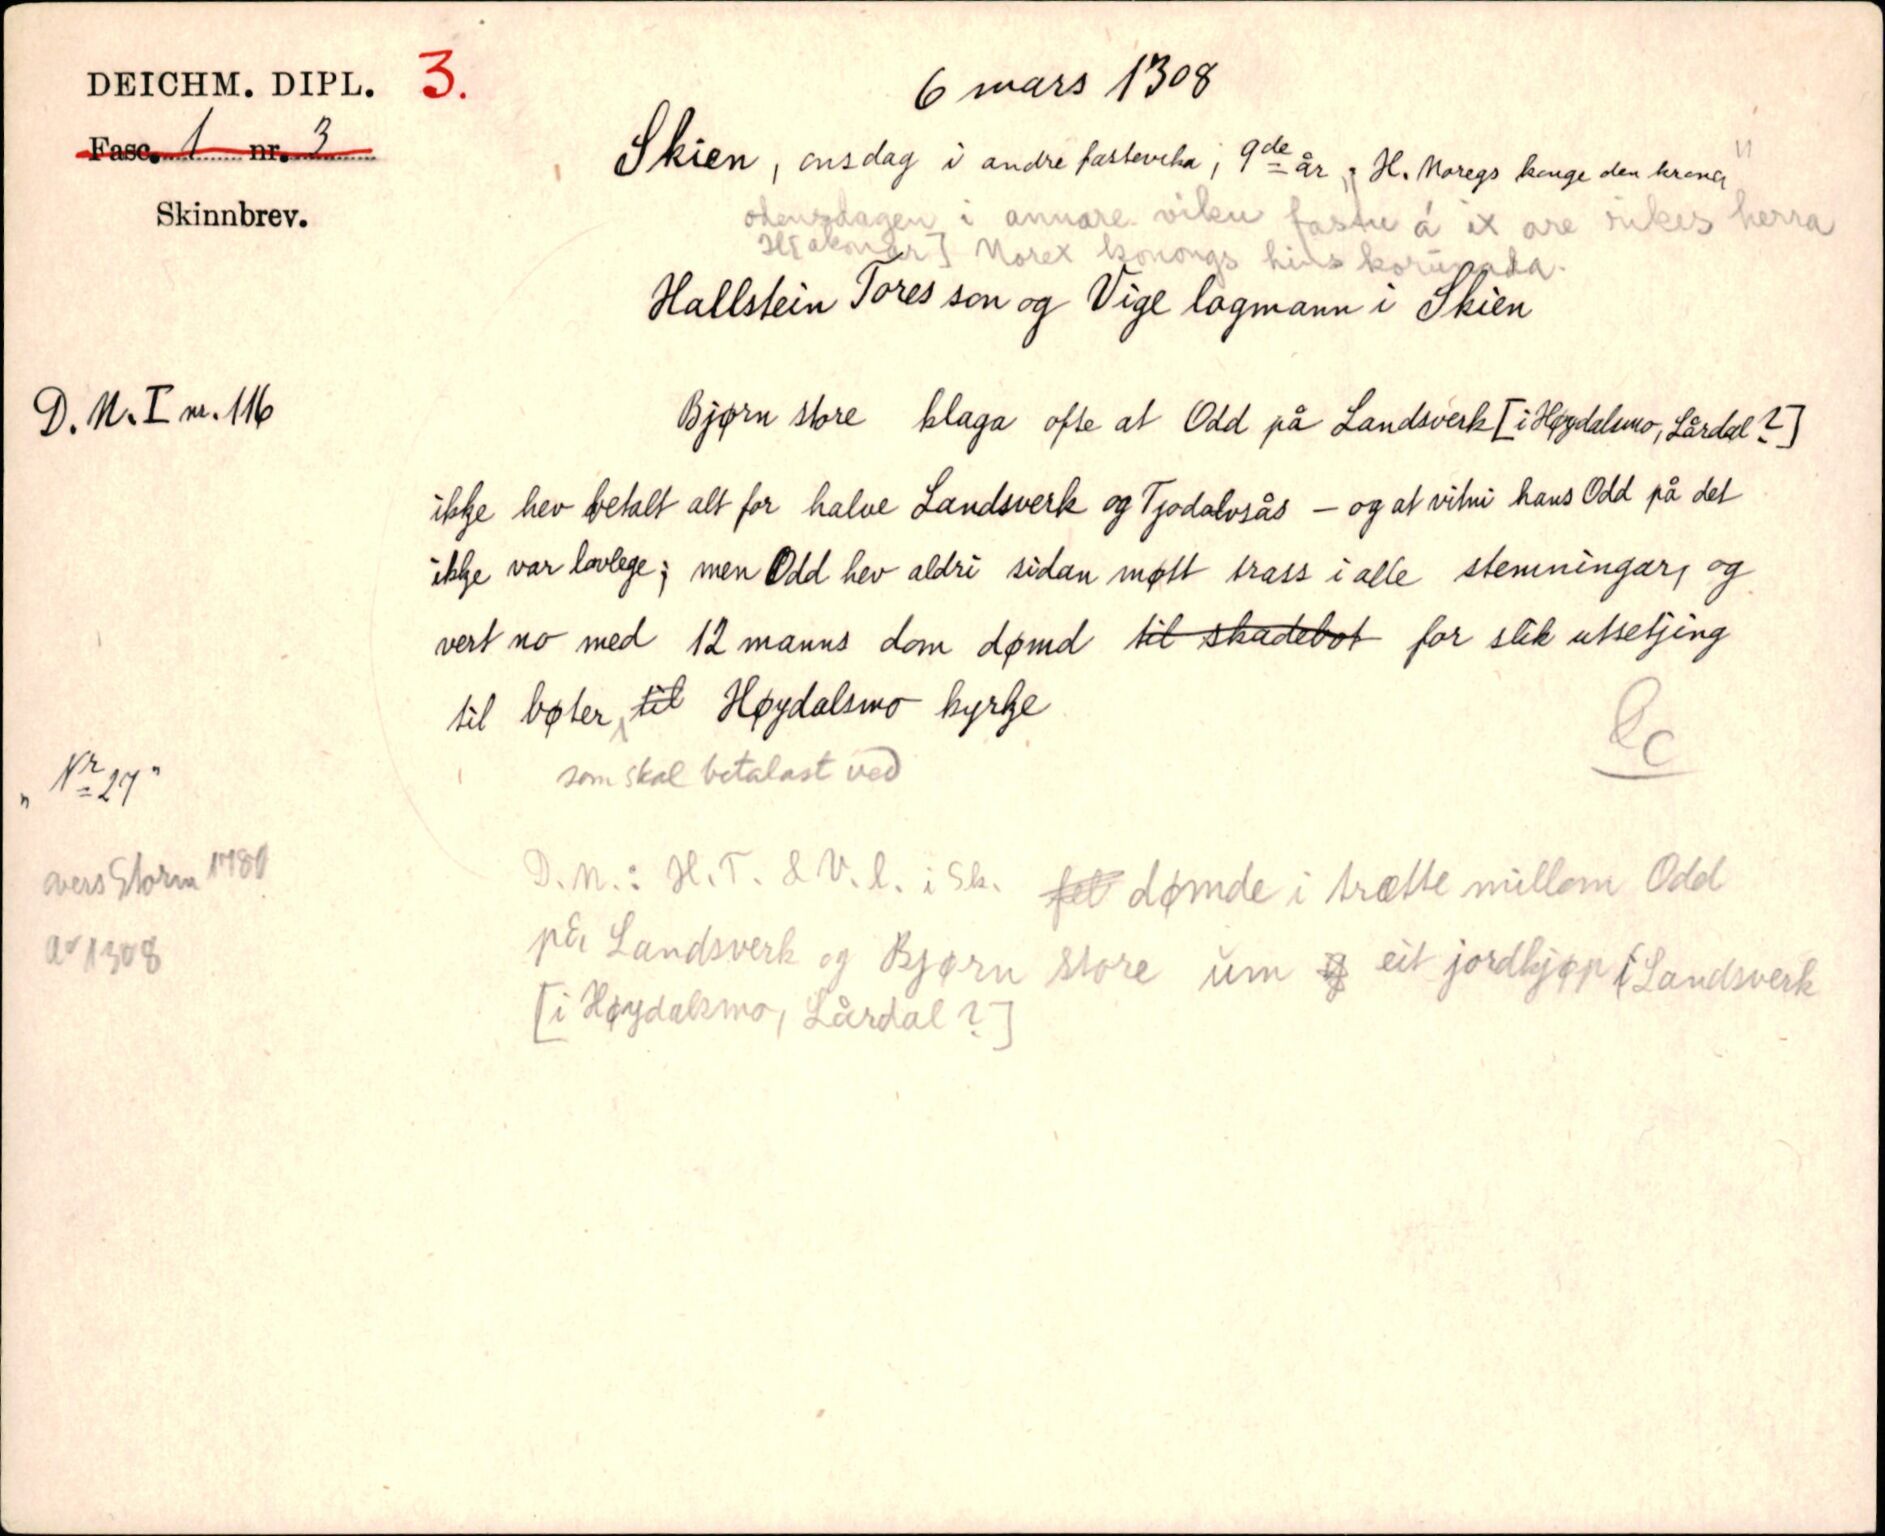 DEICHM. DIPL. 3.
Fasc. 1 nr. 3
Skinnbrev.
6 mars 1308
Skien, onsdag i andre fastevika, 9de år "H. Noregs konge den krona"
odensdagen i annare viku fastu á ix are rikes herra
H[akonar] Norex konongs hins korunada.
Hallstein Tores son og Vige lagmann i Skien
D. N. I nr. 116
Bjørn store klaga ofte at Odd på Landsverk [i Høydalsmo, Lårdal?]
ikkje hev betalt alt for halve Landsverk og Tjodalvsås – og at vitni hans Odd på det
ikkje var lovlege; men Odd hev aldri sidan møtt trass i alle stemningar, og
vert no med 12 manns dom dømd til skadebot for slik utsetjing
til bøter til Høydalsmo kyrkje
som skal betalast ved
"Nr 27"
avers Storm 1780
ao 1308
D.N.: H.T. & V.l. i Sk. fel dømde i trætte millom Odd
på Landsverk og Bjørn store um eit jordkjøp i Landsverk
[i Høydalsmo, Lårdal?]